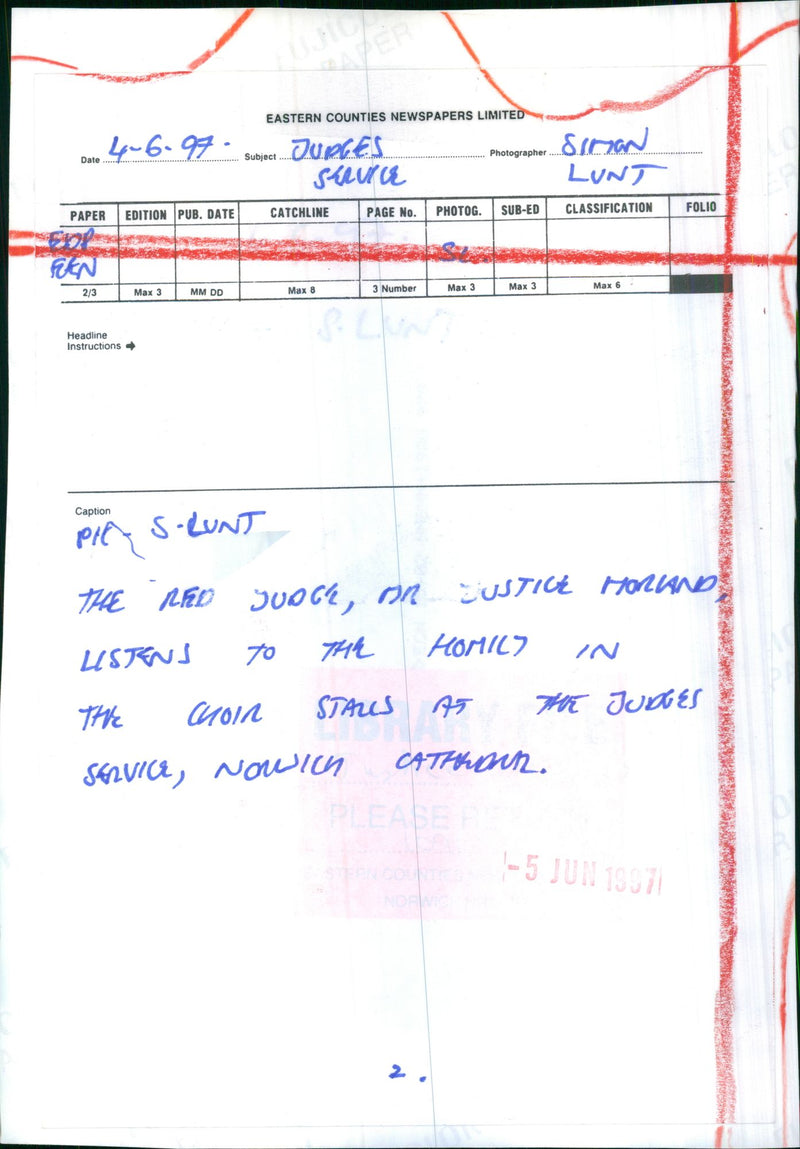 FUJICOLOR
PAPER
EASTERN COUNTIES NEWSPAPERS LIMITED
Date 4-6-97. Subject JUDGES Photographer SIMON
SERVICE LUNT
PAPER EDITION PUB. DATE CATCHLINE PAGE No. PHOTOG. SUB-ED CLASSIFICATION FOLIO
EDP SL
EEN
2/3 Max 3 MM DD Max 8 3 Number Max 3 Max 3 Max 6
S. LUNT
Headline
Instructions ➡
Caption
PIC - S-LUNT
THE RED JUDGE, MR JUSTICE MORLAND,
LISTENS TO THE HOMILY IN
THE CHOIR STALLS AT THE JUDGES
SERVICE, NORWICH CATHEDRAL.
LIBRARY
PLEASE
-5 JUN 1997
EASTERN COUNTIES
NORWICH
2.